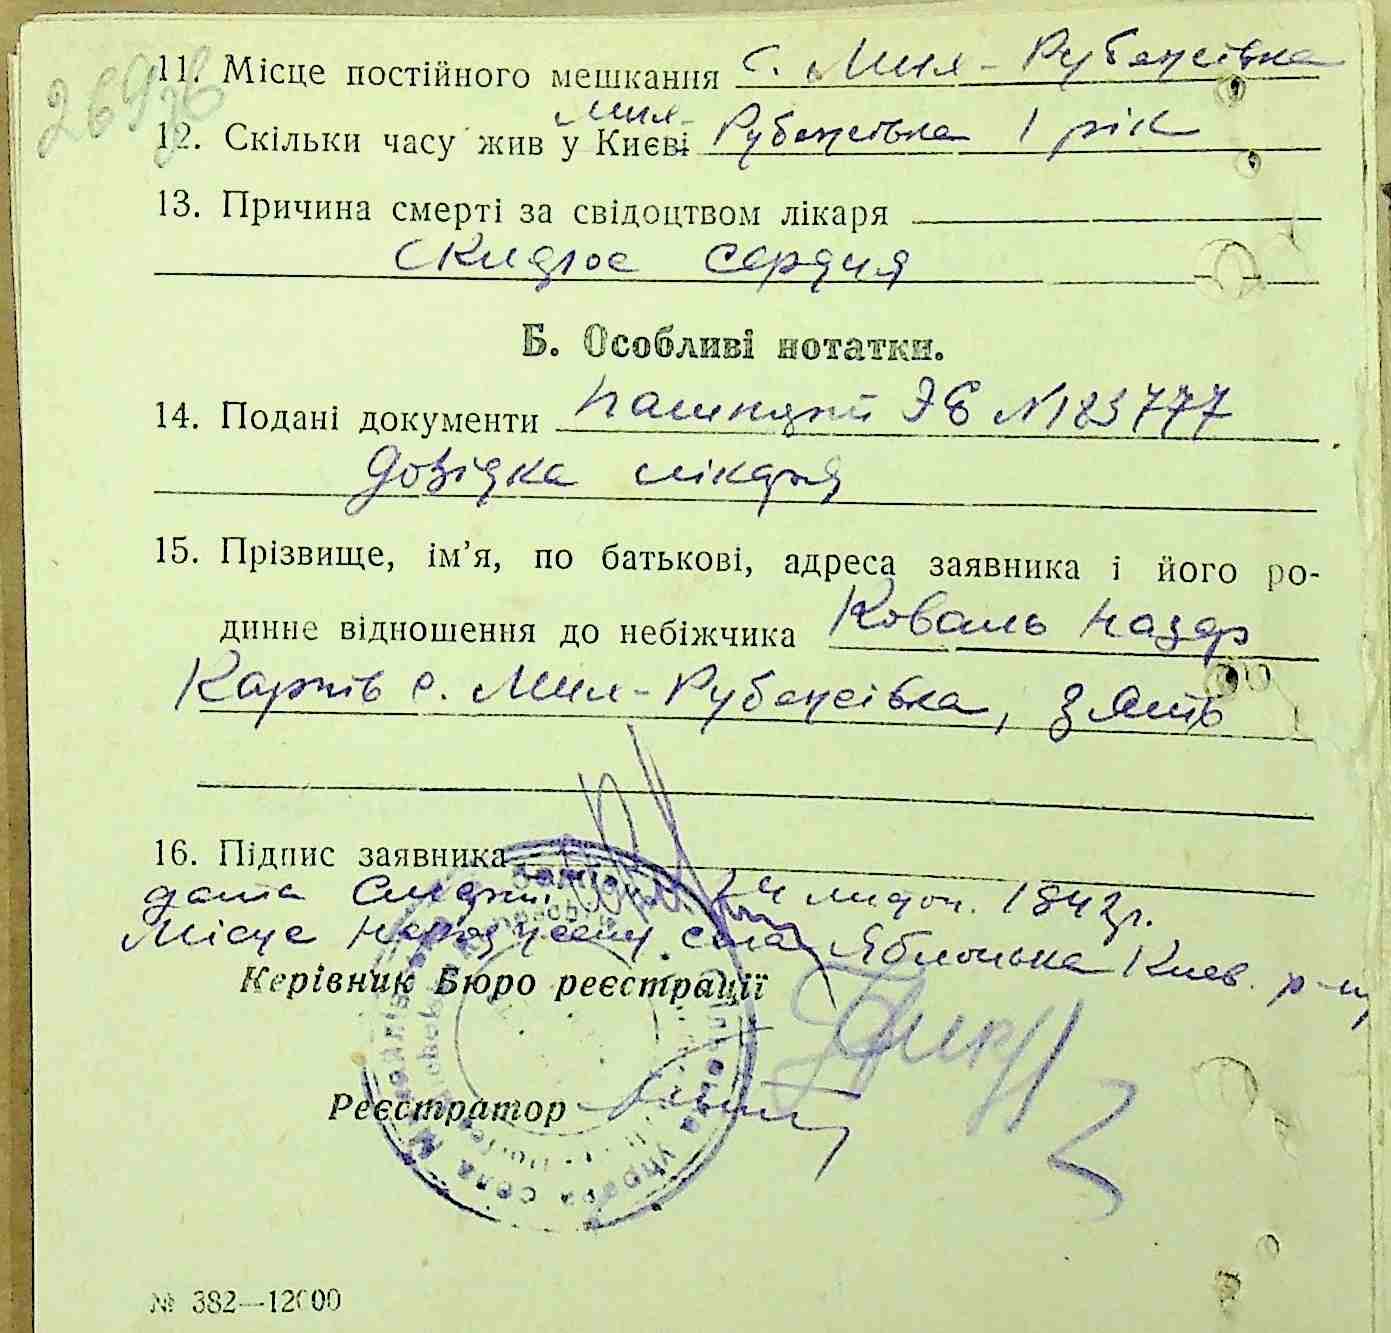 269
11. Місце постійного мешкання с. Мик-Рубежівка
Мик-
12. Скільки часу жив у Києві Рубежівка 1 рік
13. Причина смерті за свідоцтвом лікаря
серця
Б. Особливі нотатки.
14. Подані документи пашпорт ЭБ №183777
Довідка лікаря
15. Прізвище, ім’я, по батькові, адреса заявника і його ро-
динне відношення до небіжчика Коваль Назар
Карпів с. Мик-Рубежівка, зять
16. Підпис заявника
дата смерті 1942р.
Місце народження село Яблонька Киев. р-ну
Керівник Бюро реєстрації
Реєстратор
№ 382—12000